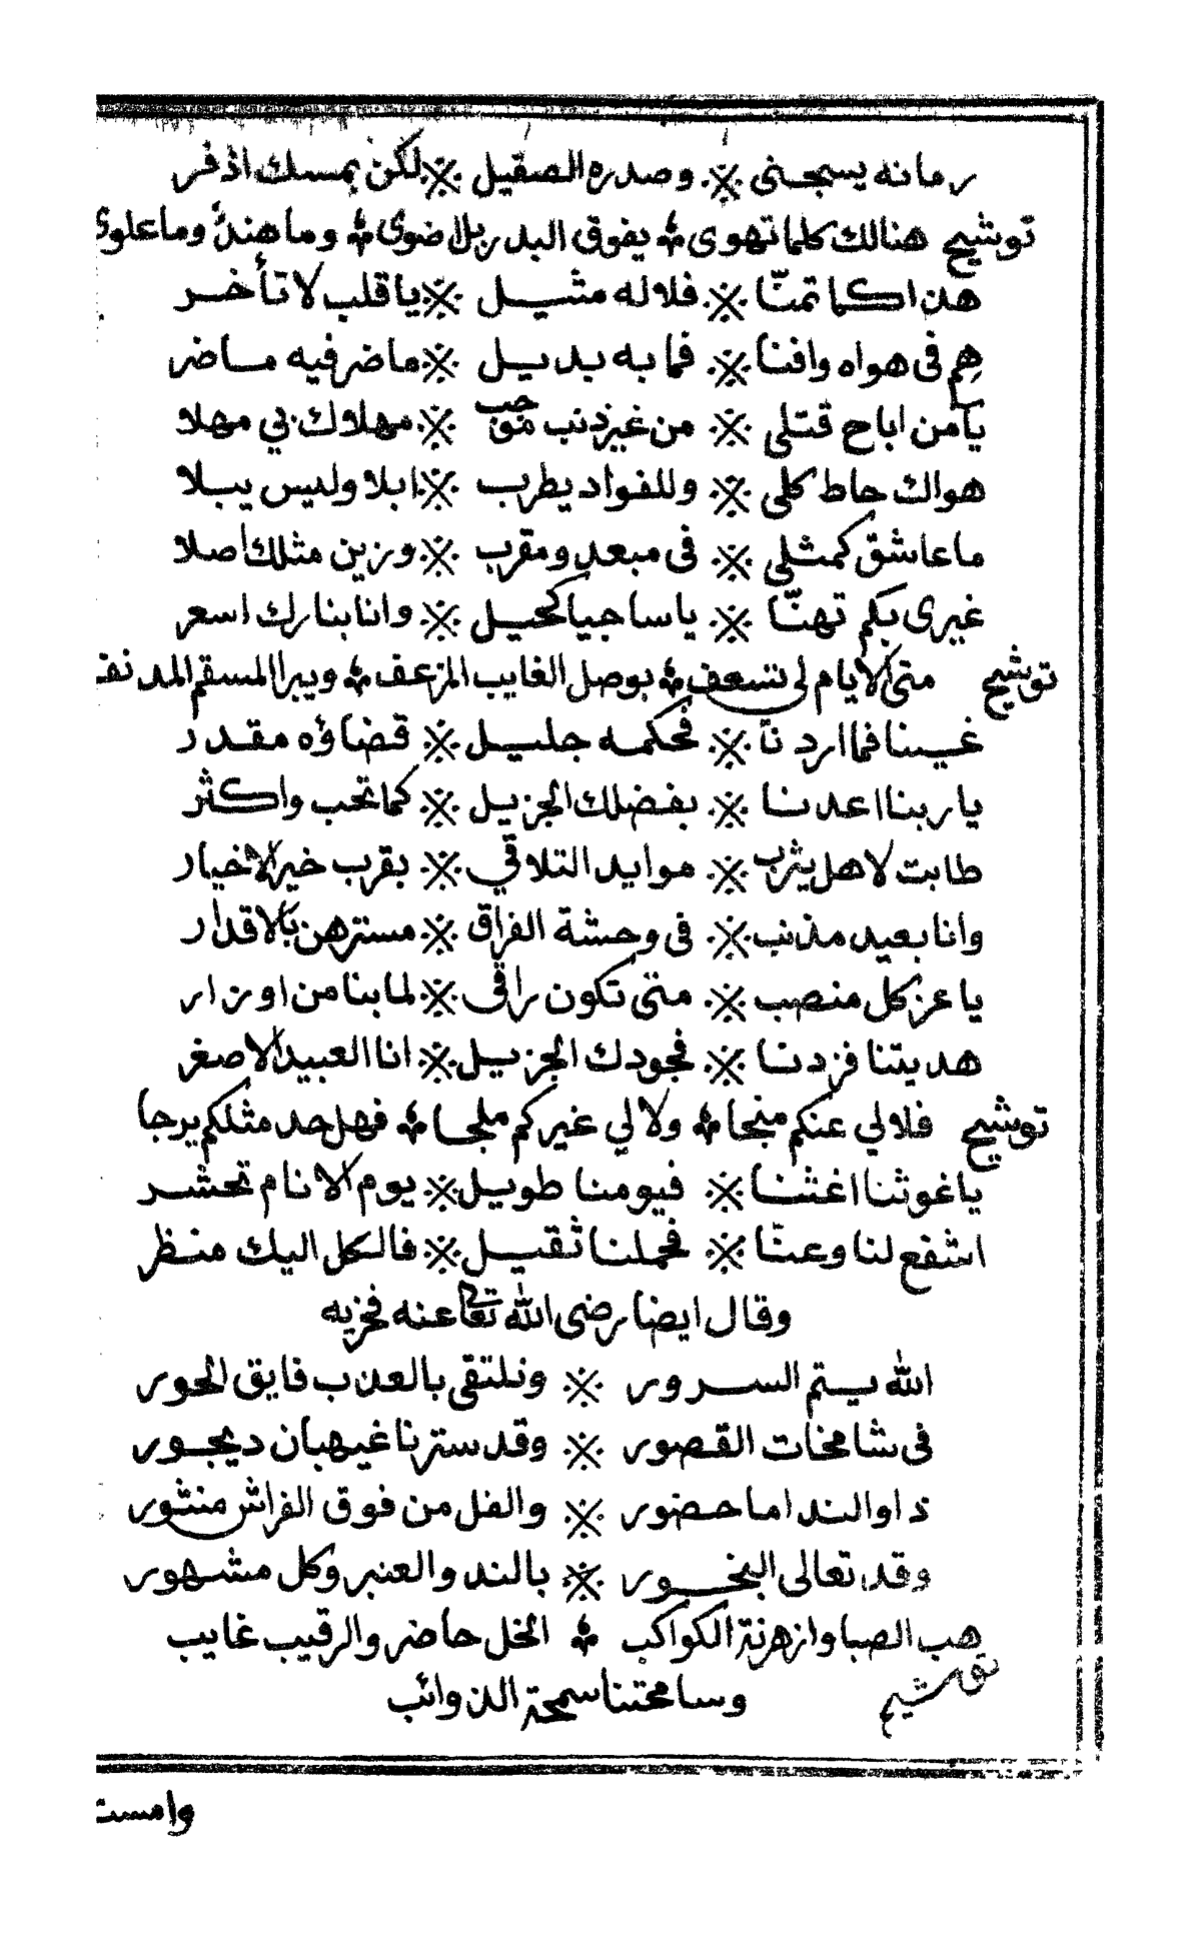 رمانه يسجنى ※ وصدره الصقيل ※ لكن بمسك اذفر
توشيح هنالك كلما تهوى ؞ يفوق البدر بل اضوى ؞ وما هند وما علوى
هذا كما تمنّا ※ فلا له مثيل ※ يا قلب لا تأخر
هِم فى هواه وافننا ※ فما به بديل ※ ما ضر فيه ماضر
يا من اباح قتلي ※ من غير ذنب موجب ※ مهلا وك بي مهلا
هواك حاط كلي ※ وللفواد يطرب ※ ابلا وليس يبلا
ما عاشق كمثلي ※ فى مبعد ومقرب ※ وزين مثلك اصلا
غيرى بكم تهنّا ※ يا ساجيا كحيل ※ وانا بنارك اسعر
توشيح متى الايام لى تسعف ؞ بوصل الغايب المزعف ؞ ويبرا المسقم المدنف
غيبنا فما اردنا ※ فحكمه جليل ※ قضاؤه مقدر
يا ربنا اعدنا ※ بفضلك الجزيل ※ كما تحب واكثر
طابت لاهل يثرب ※ موايد التلاقي ※ بقرب خير الاخيار
وانا بعيد مذنب ※ فى وحشة الفراق ※ مسترهن بالاقدار
يا عز كل منصب ※ متى تكون راقى ※ لما بنا من اوزار
هديتنا فزدنا ※ فجودك الجزيل ※ انا العبيد الاصغر
توشيح فلا لي عنكم منجا ؞ ولا لي غيركم ملجا ؞ فهل حد مثلكم يرجا
يا غوثنا اغثنا ※ فيومنا طويل ※ يوم الانام تحشر
اشفع لنا وعنّا ※ فحملنا ثقيل ※ فالكل اليك منظر
وقال ايضا رضى الله تعالى عنه فخزيه
الله يتم السرور ※ ونلتقى بالعذب فايق الحور
فى شامخات القصور ※ وقد سترنا غيهبان ديجور
ذا والندا ما حضور ※ والفل من فوق الفراش منثور
وقد تعالى البخور ※ بالند والعنبر وكل مشهور
هب الصبا وازهرنة الكواكب ؞ الخل حاضر والرقيب غايب
توشيح وسامحتنا سمحة الذوائب
وامست